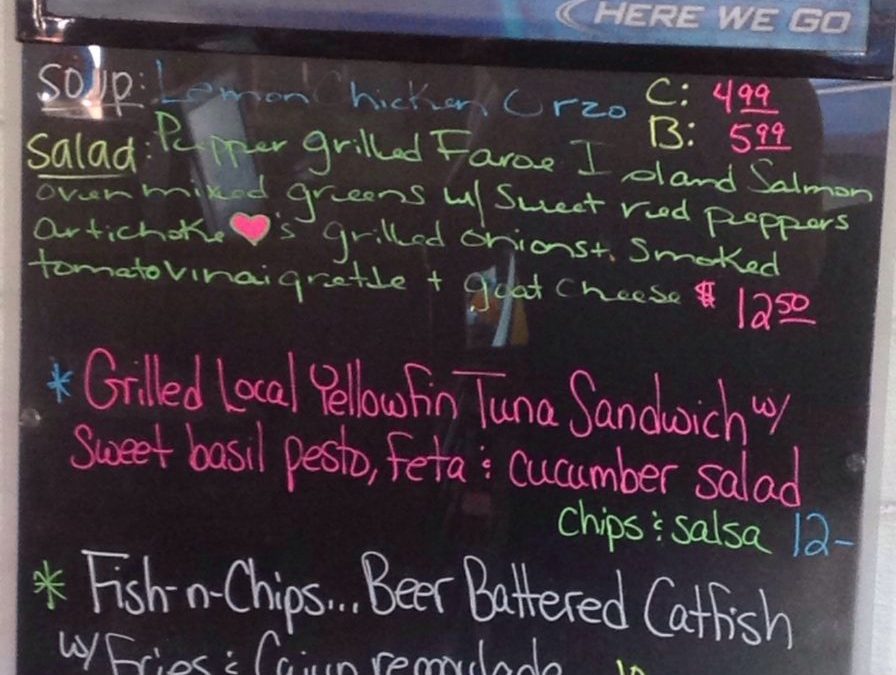 HERE WE GO
Soup: Lemon Chicken Orzo C: 4.99
B: 5.99
Salad: Pepper grilled Faroe Island Salmon
over mixed greens w/ Sweet red peppers
artichoke ♥'s grilled onions + Smoked
tomato vinaigrette + goat cheese $ 12.50
* Grilled Local Yellowfin Tuna Sandwich w/
Sweet basil pesto, feta & cucumber salad
chips & salsa 12-
* Fish-n-Chips... Beer Battered Catfish
w/ Fries & Cajun remoulade